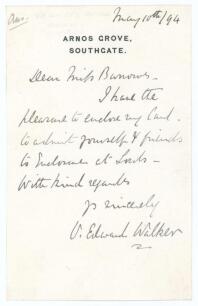 Ans.
May 10th/94
ARNOS GROVE,
SOUTHGATE.
Dear Miss Burrows –
I have the
pleasure to enclose my Card –
to admit yourself & friends
to Enclosure at Lords –
With kind regards
Yrs sincerely
V. Edward Walker